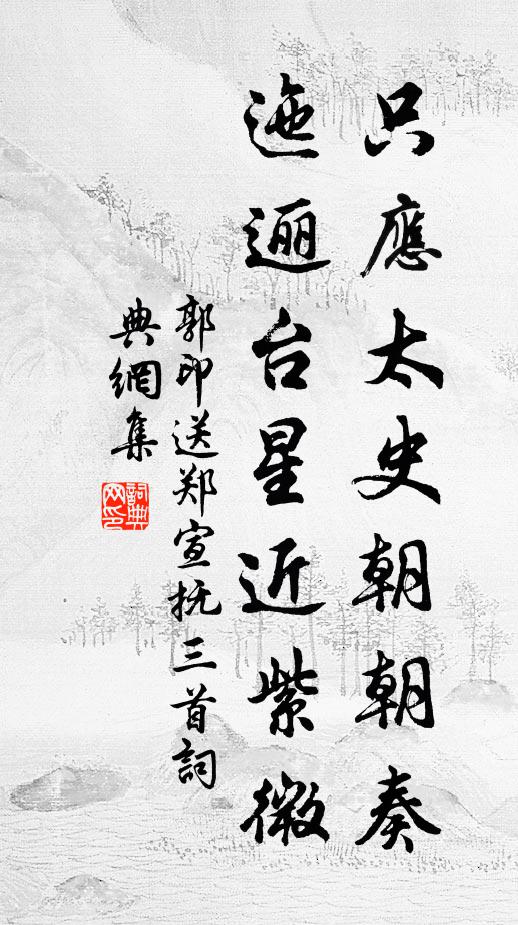 只應太史朝朝奏
迤逦台星近紫微
郭印送郑宣抚三首詞
典網集
詞典网印